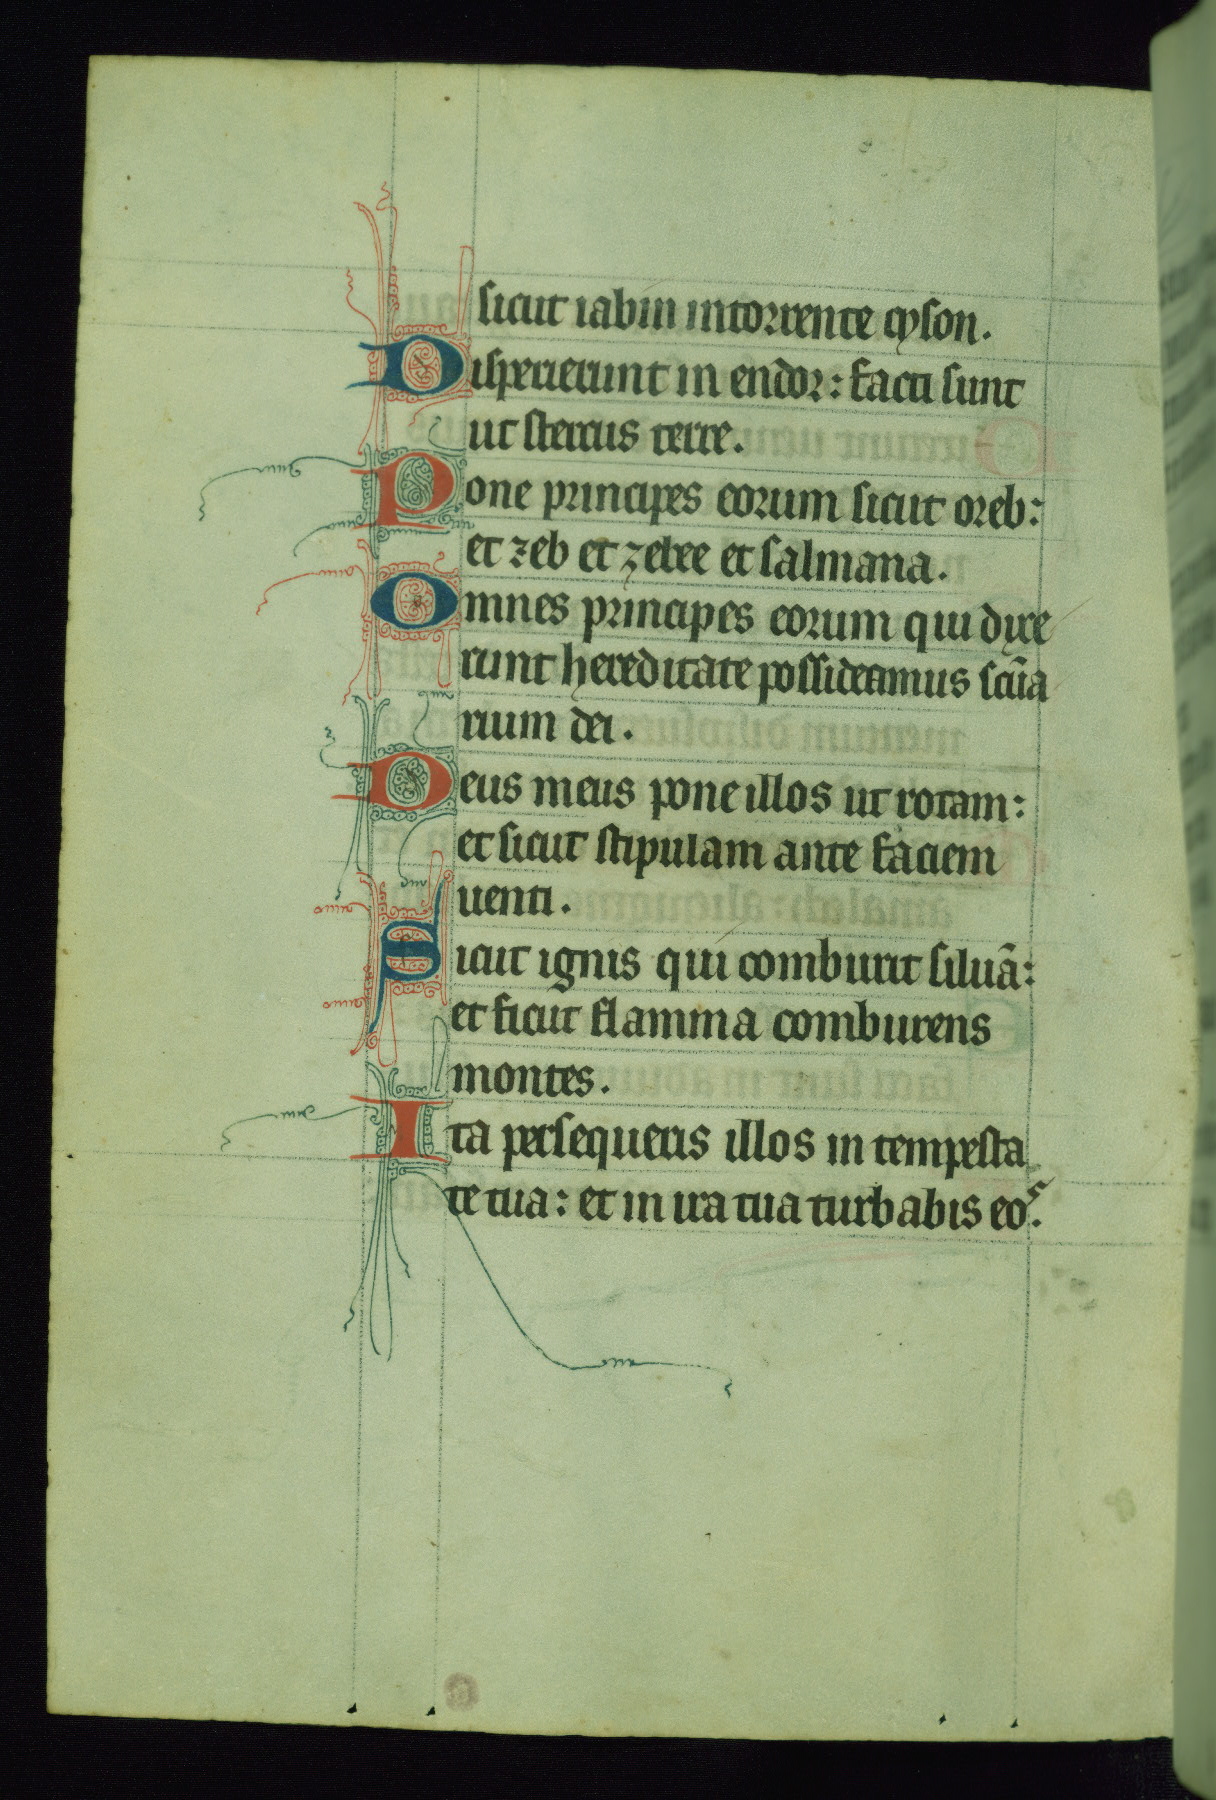 sicut iabin in torrente cyson.
Disperierunt in endor: facti sunt
ut stercus terre.
Pone principes eorum sicut oreb:
et zeb et zebee et salmana.
Omnes principes eorum qui dixe
runt hereditate possideamus sc̄ua
rium dei.
Deus meus pone illos ut rotam:
et sicut stipulam ante faciem
uenti.
Sicut ignis qui comburit siluā:
et sicut flamma comburens
montes.
Ita persequeris illos in tempesta
te tua: et in ira tua turbabis eos.